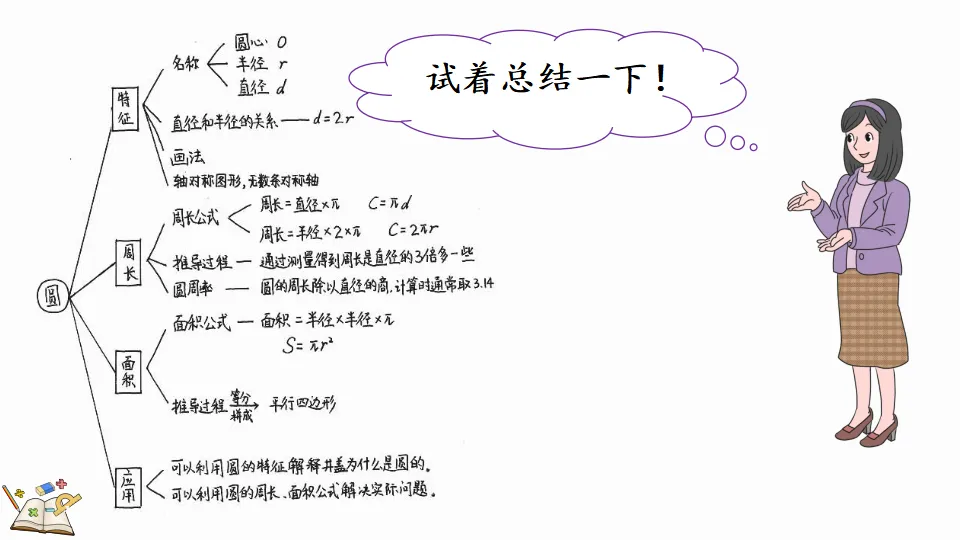 试着总结一下！
圆
特征
名称
圆心 O
半径 r
直径 d
直径和半径的关系——d=2r
画法
轴对称图形,无数条对称轴
周长
周长公式
周长=直径×π C=πd
周长=半径×2×π C=2πr
推导过程—通过测量得到周长是直径的3倍多一些
圆周率——圆的周长除以直径的商,计算时通常取3.14
面积
面积公式—面积=半径×半径×π
S=πr²
推导过程 等分 拼成 平行四边形
应用
可以利用圆的特征解释井盖为什么是圆的。
可以利用圆的周长、面积公式解决实际问题。